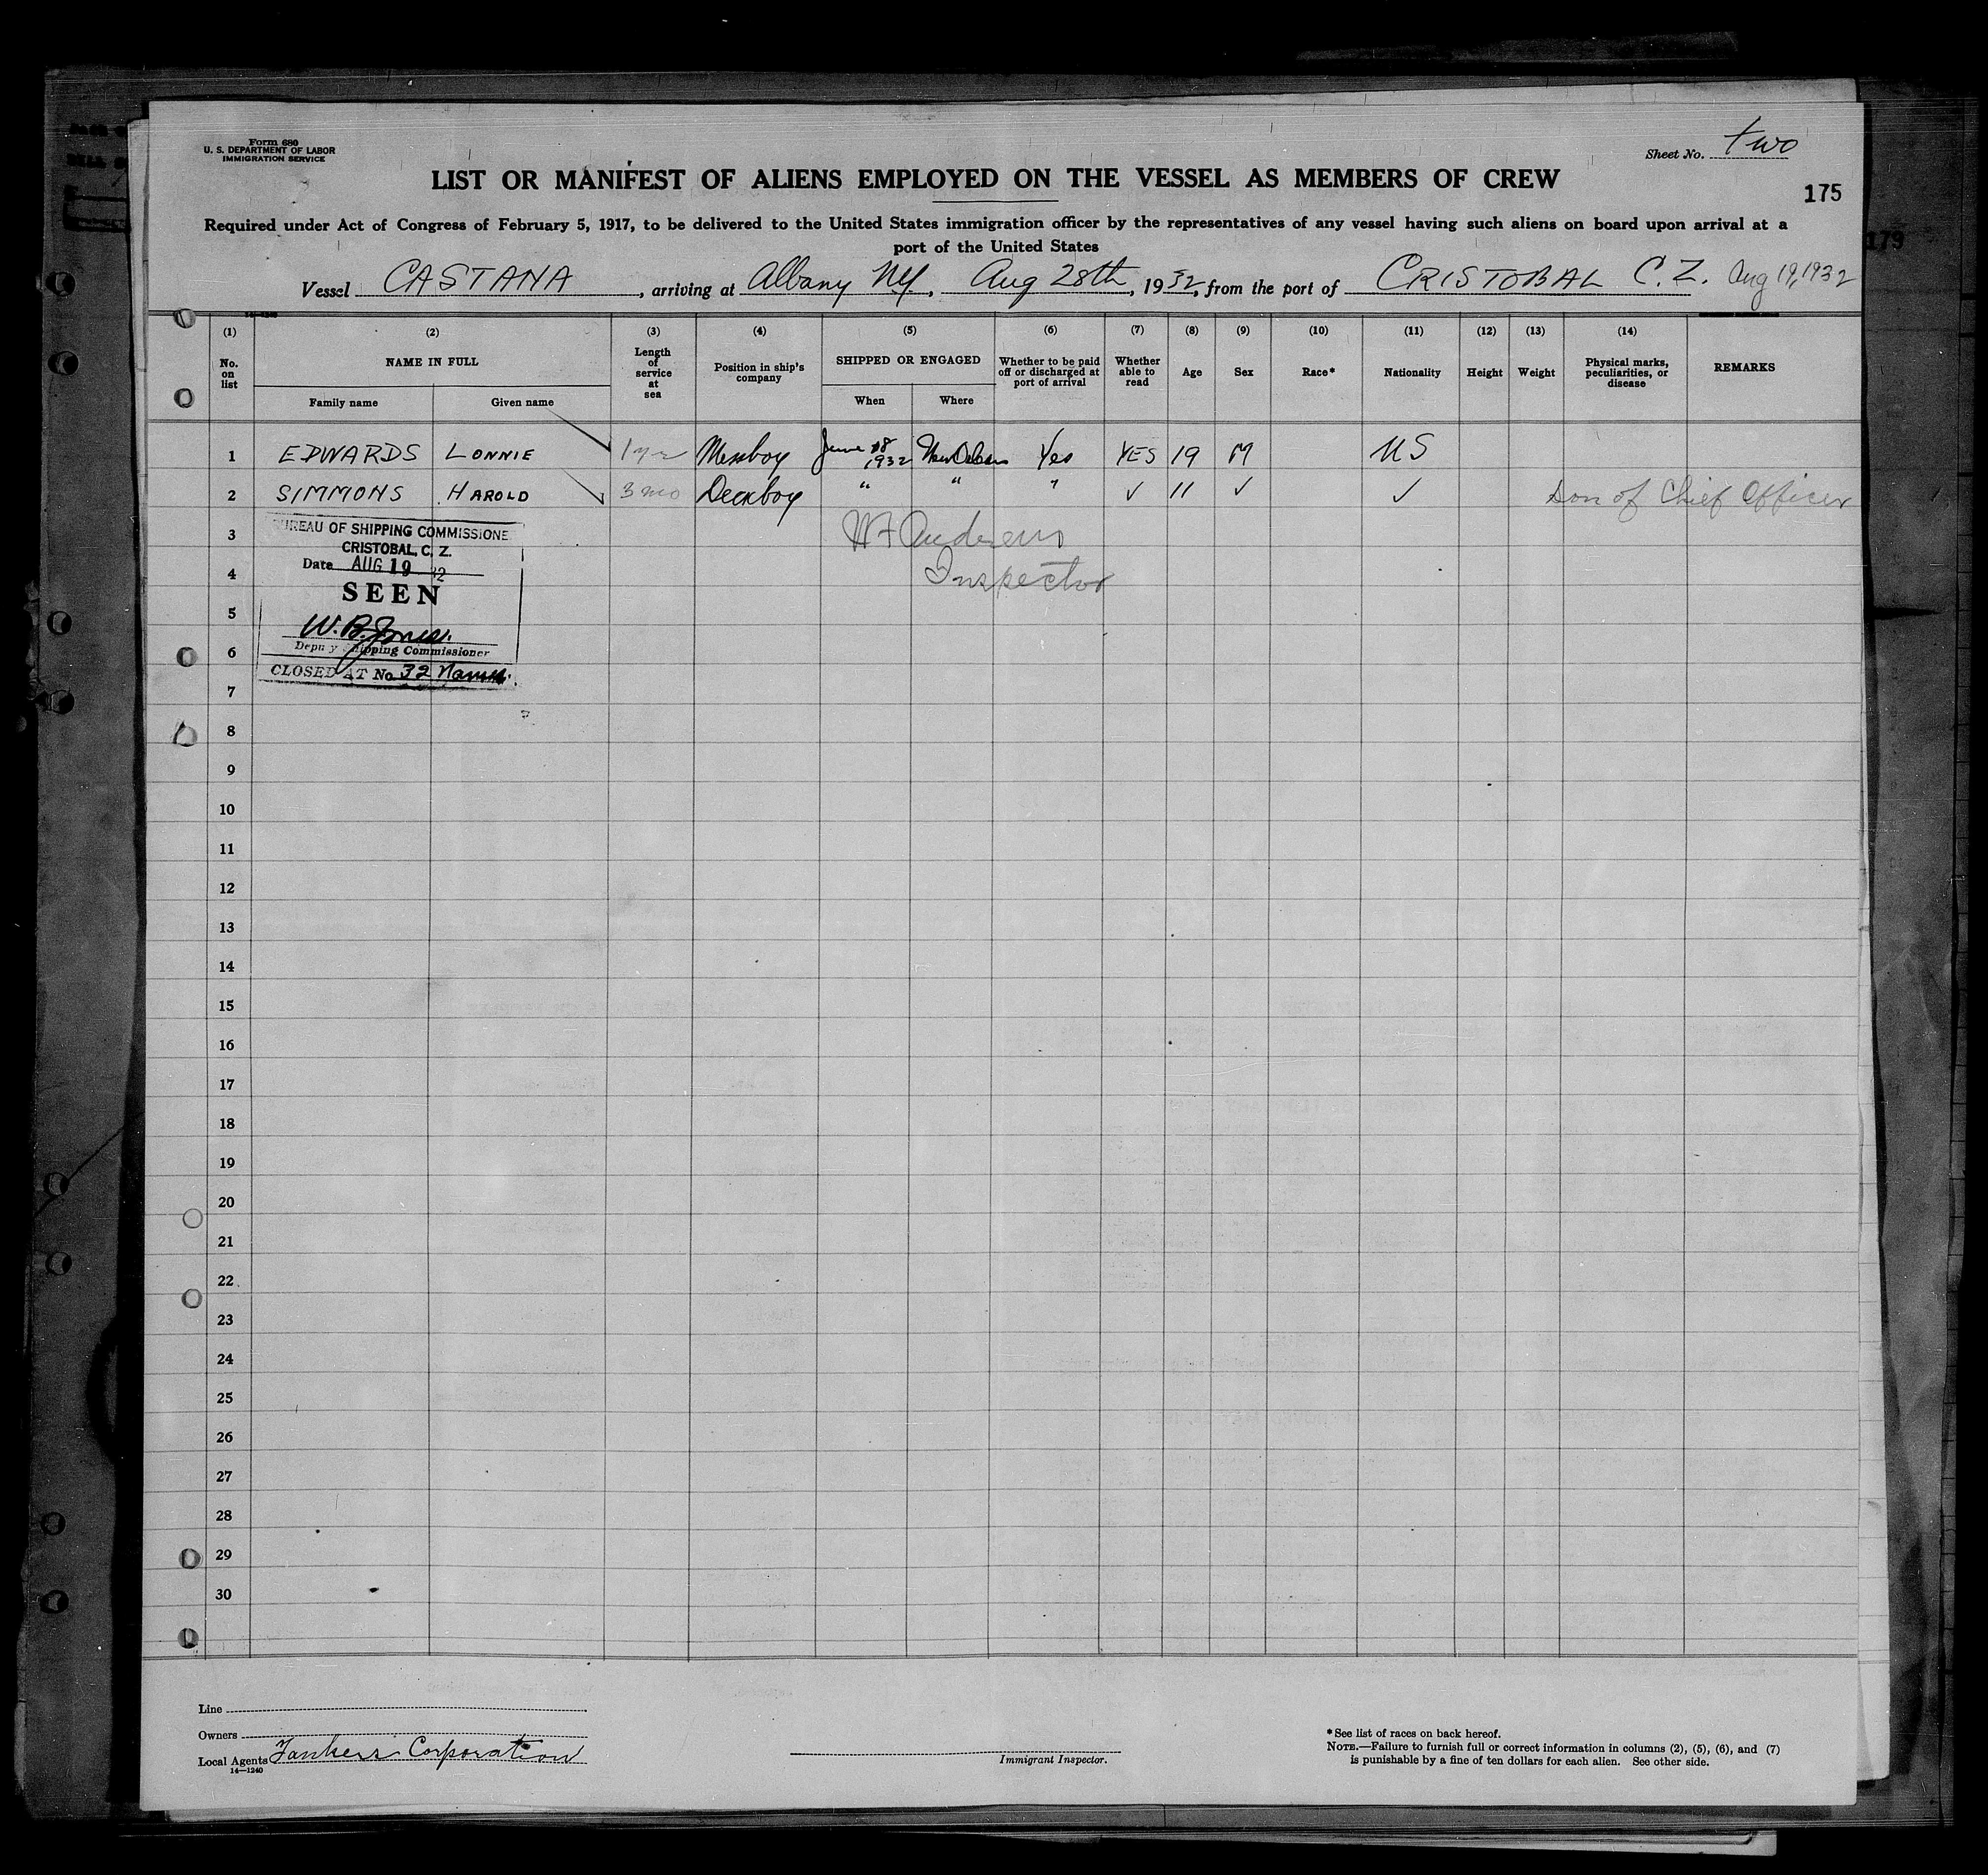 Form 680
U. S. DEPARTMENT OF LABOR
IMMIGRATION SERVICE
Sheet No. two
LIST OR MANIFEST OF ALIENS EMPLOYED ON THE VESSEL AS MEMBERS OF CREW
175
Required under Act of Congress of February 5, 1917, to be delivered to the United States immigration officer by the representatives of any vessel having such aliens on board upon arrival at a
port of the United States
179
Vessel CASTANA, arriving at Albany NY, Aug 28th, 1932, from the port of CRISTOBAL C.Z. Aug 19, 1932
14-1240
(1) (2) (3) (4) (5) (6) (7) (8) (9) (10) (11) (12) (13) (14)
No. on list
NAME IN FULL
Family name
Given name
Length of service at sea
Position in ship's company
SHIPPED OR ENGAGED
When
Where
Whether to be paid off or discharged at port of arrival
Whether able to read
Age
Sex
Race*
Nationality
Height
Weight
Physical marks, peculiarities, or disease
REMARKS
1 EDWARDS LONNIE 1 yr Messboy June 18 1932 New Orleans Yes YES 19 M US
2 SIMMONS HAROLD 3 mo Deckboy " " " ✓ 11 ✓ ✓ Son of Chief Officer
BUREAU OF SHIPPING COMMISSIONE
CRISTOBAL, C. Z.
Date AUG 19 32
SEEN
W. B. Jones.
Deputy Shipping Commissioner
CLOSED AT No 32
W F Andrews
Inspector
3
4
5
6
7
8
9
10
11
12
13
14
15
16
17
18
19
20
21
22
23
24
25
26
27
28
29
30
Line
Owners
Local Agents Tankers Corporation
14—1240
Immigrant Inspector.
*See list of races on back hereof.
NOTE.—Failure to furnish full or correct information in columns (2), (5), (6), and (7)
is punishable by a fine of ten dollars for each alien. See other side.